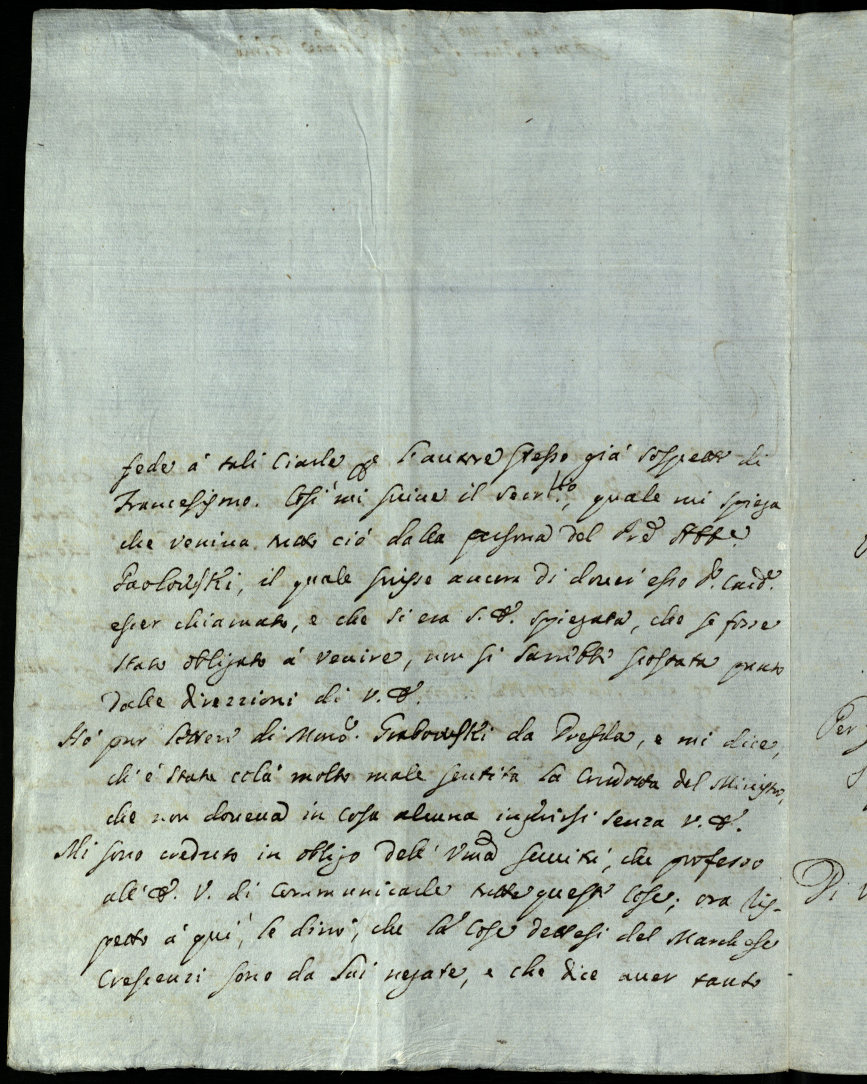 fede á tali Ciarle p l'avere stesso giá sospetto di
Francesismo. Così mi scrive il Secr.rio, quale mi spiega
che veniva tutto ció dalla persona del Pre Abbe
Paolowski, il quale scrisse ancora di dover esso S. Card.
esser chiamato, e che si era S. E. spiegata, che se fosse
stato obligato á venire, non si sarebbe scostata punto
dalle direzzioni di V. E.
Hó pur lettere di Monr. Grabowski da Dresda, e mi dice,
ch'é stata colá molto male sentita la Condotta del Ministro,
che non doveva in cosa alcuna ingerirsi senza V. E.
Mi sono creduto in obligo dell' Uma servitú, che professo
all' E. V. di communicarle tutte queste Cose; ora ris-
petto á quí, le diró, che le Cose dettesi del Marchese
Crescenzi sono da lui negate, e che dice aver tanto
Per
Di V